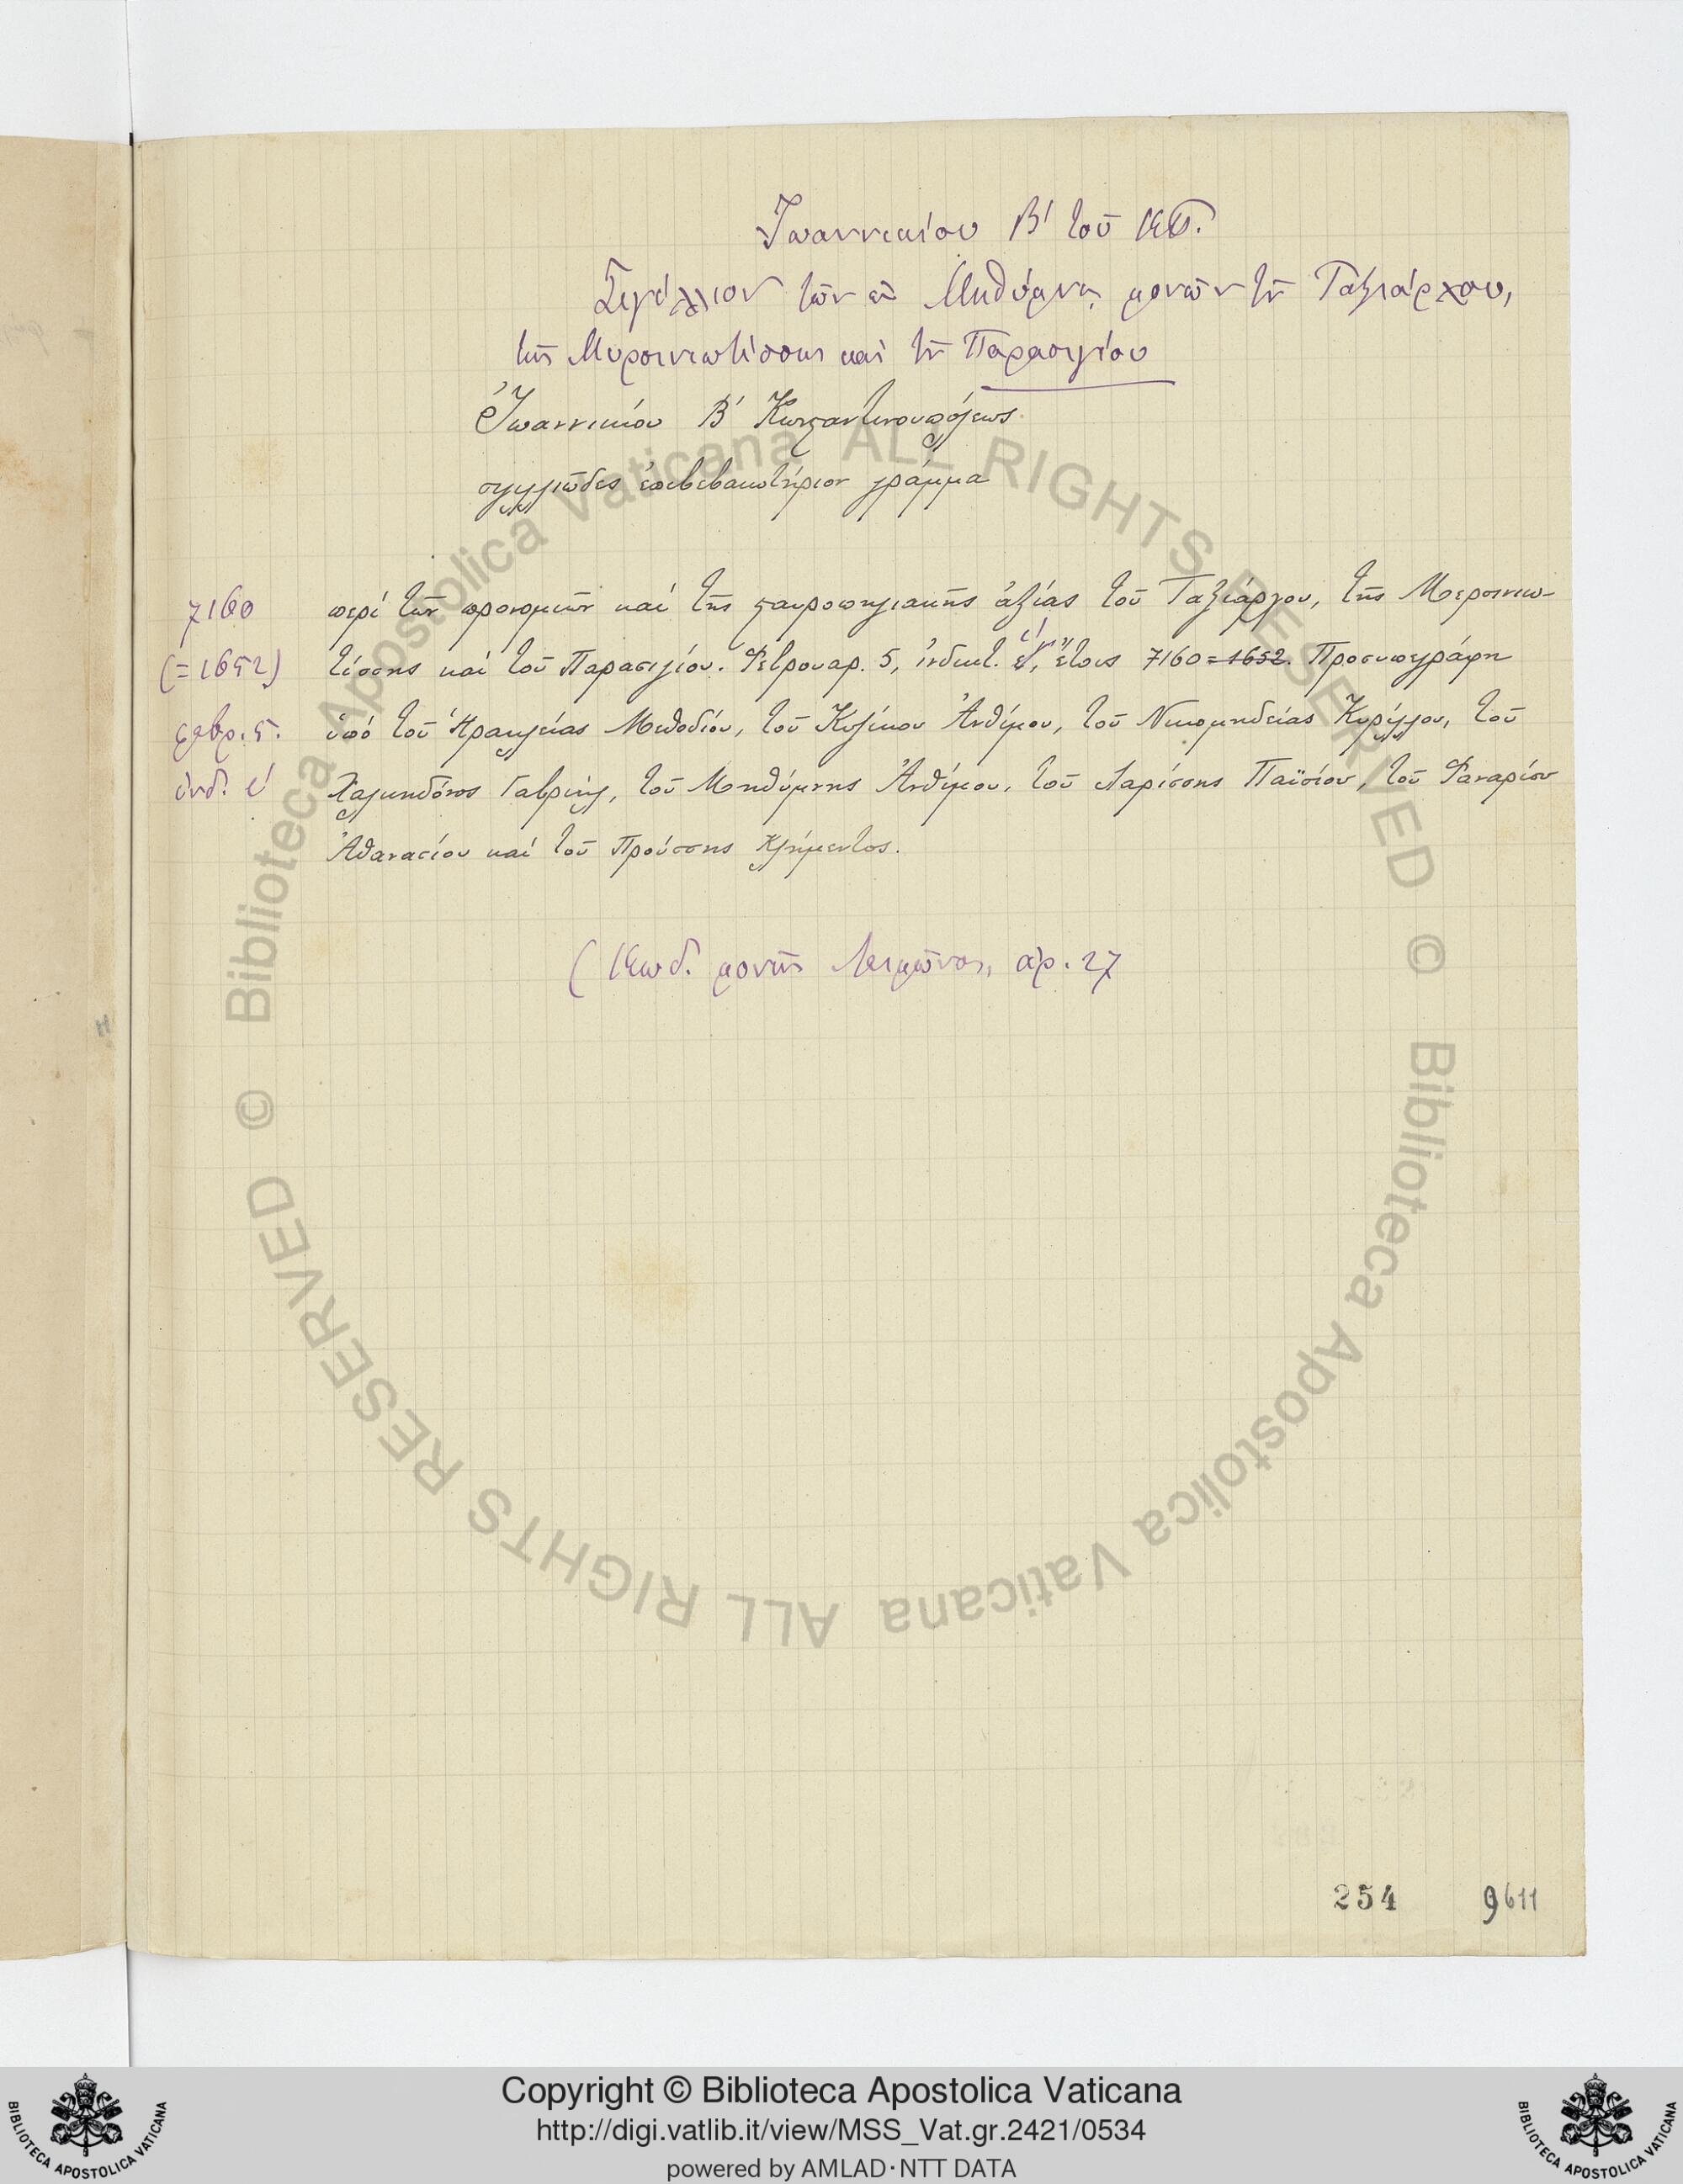 Ἰωαννικίου Β΄ τοῦ ΚΠ.
Σιγίλλιον τῶν ἐν Μηθύμνῃ μονῶν τοῦ Ταξιάρχου,
τῆς Μυρσινιωτίσσης καὶ τοῦ Παρασιγίου
Ἰωαννικίου Β΄ Κωνσταντινουπόλεως
σιγιλλιῶδες ἐπιβεβαιωτήριον γράμμα
7160
(=1652)
φεβρ. 5.
ἰνδ. ε΄
περὶ τῶν προνομιῶν καὶ τῆς σταυροπηγιακῆς ἀξίας τοῦ Ταξιάρχου, τῆς Μερσινιω-
τίσσης καὶ τοῦ Παρασιγίου. Φεβρουαρ. 5, ἰνδικτ. ε΄, ἔτους 7160=1652. Προσυπεγράφη
ὑπὸ τοῦ Ἡρακλείας Μεθοδίου, τοῦ Κυζίκου Ἀνθίμου, τοῦ Νικομηδείας Κυρίλλου, τοῦ
Χαλκηδόνος Γαβριήλ, τοῦ Μηθύμνης Ἀνθίμου, τοῦ Λαρίσσης Παϊσίου, τοῦ Φαναρίου
Ἀθανασίου καὶ τοῦ Προύσσης Κλήμεντος.
(Κωδ. μονῆς Λειμῶνος, ἀρ. 27
254 9611
© Biblioteca Apostolica Vaticana ALL RIGHTS RESERVED © Biblioteca Apostolica Vaticana ALL RIGHTS RESERVED
Copyright © Biblioteca Apostolica Vaticana
http://digi.vatlib.it/view/MSS_Vat.gr.2421/0534
powered by AMLAD·NTT DATA
BIBLIOTECA APOSTOLICA VATICANA
BIBLIOTECA APOSTOLICA VATICANA